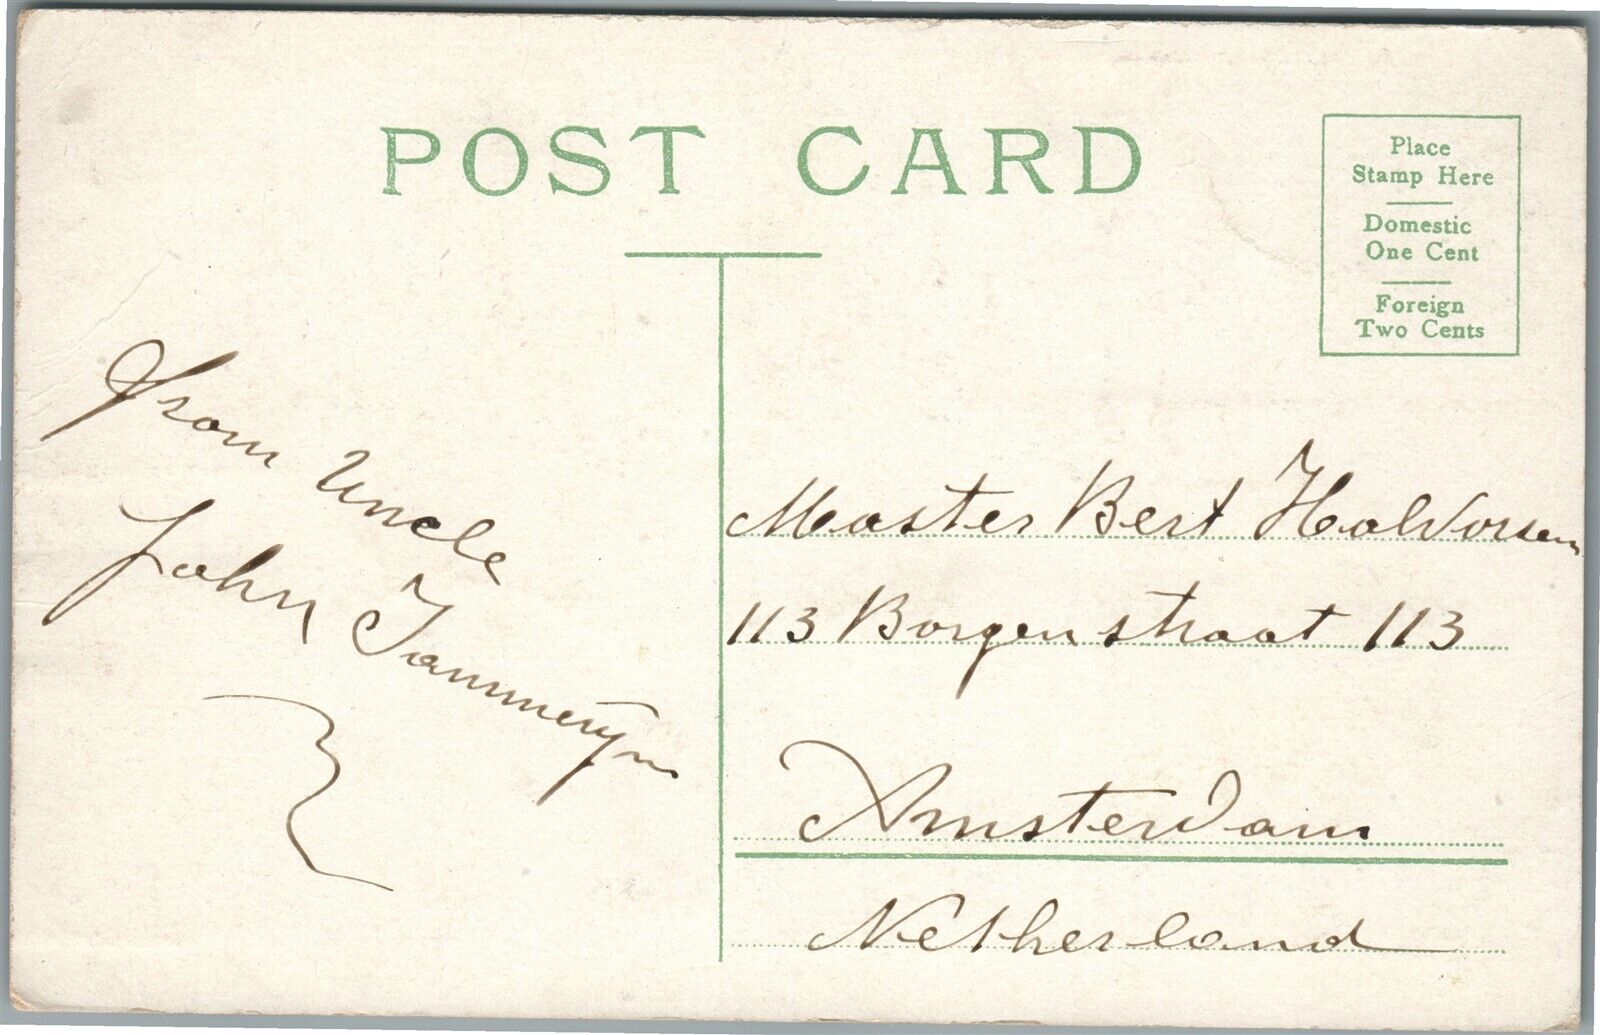 POST CARD
Place
Stamp Here
Domestic
One Cent
Foreign
Two Cents
From Uncle
John Tammeryn
Master Bert Halvorsen
113 Borgenstraat 113
Amsterdam
Netherland